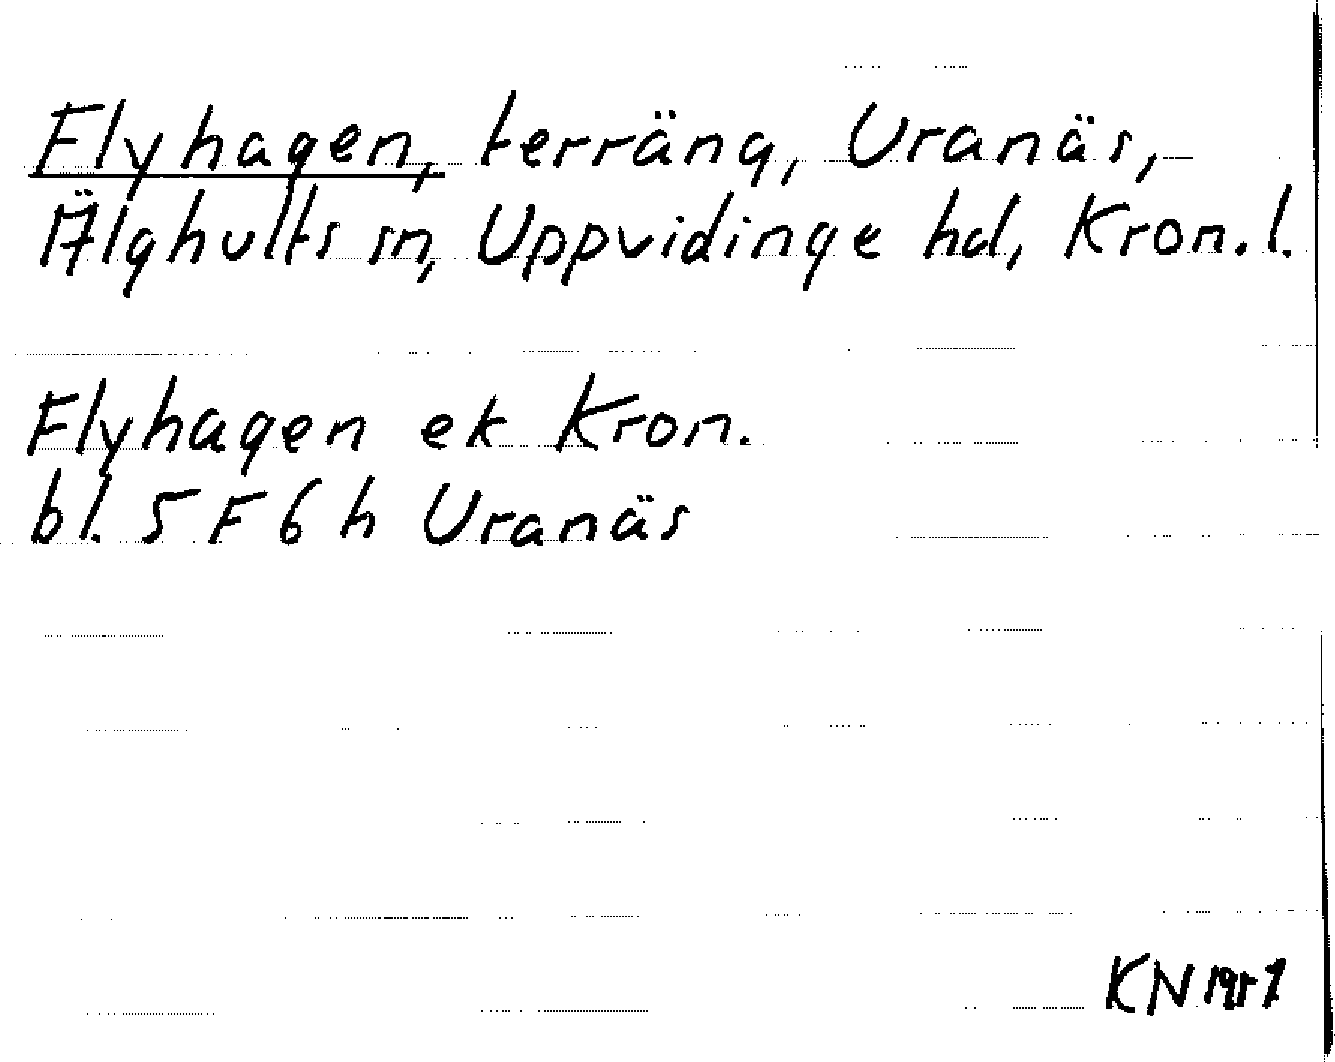 Flyhagen, terräng, Uranäs,
Älghults sn, Uppvidinge hd, Kron. l.
Flyhagen ek Kron.
bl. 5 F 6 h Uranäs
KN